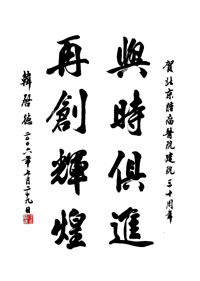 賀北京胸科醫院建院三十周年
與時俱進
再創輝煌
韓啓德二〇〇六年七月二十九日